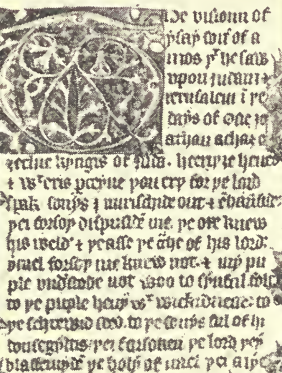 he visioun of
ysay þe sone of a
mos þt he saw
upon iudam &
ierusalem i þe
days of osie io
athan achaz e
zechie kyngis of iuda. heereþ heuen
& wt eris perceyue þou erþ for þe lord
spak sonys I nurshide out &
þei forsoþ dispiside me. þe oxe knew
his weld' & þe asse þe cche of his lord:
irael forsoþ me knew not. & my pu
ple vndstode not woo to synful folc
to þe puple heuy wt wickidnesse: to
þe schrewid seed. to þe sonys ful of
gyltis þei forsoken þe lord þey
blasfemyde þe holy of irael þei aly